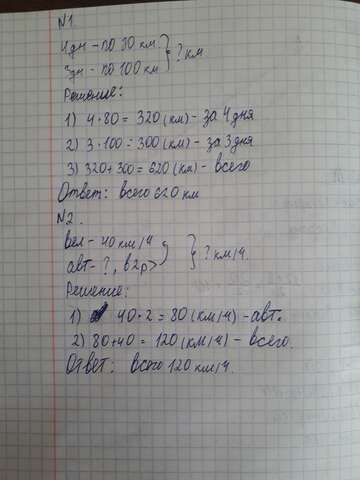 N1
4дн - по 80 км } ? км
3дн - по 100 км
Решение:
1) 4·80 = 320 (км) - за 4 дня
2) 3·100 = 300 (км) - за 3 дня
3) 320+300 = 620 (км) - всего
Ответ: всего 620 км
N2.
вел - 40 км/ч } ? км/ч.
авт - ?, в 2р >
Решение:
1) 40·2 = 80 (км/ч) - авт.
2) 80+40 = 120 (км/ч) - всего.
Ответ: всего 120 км/ч.